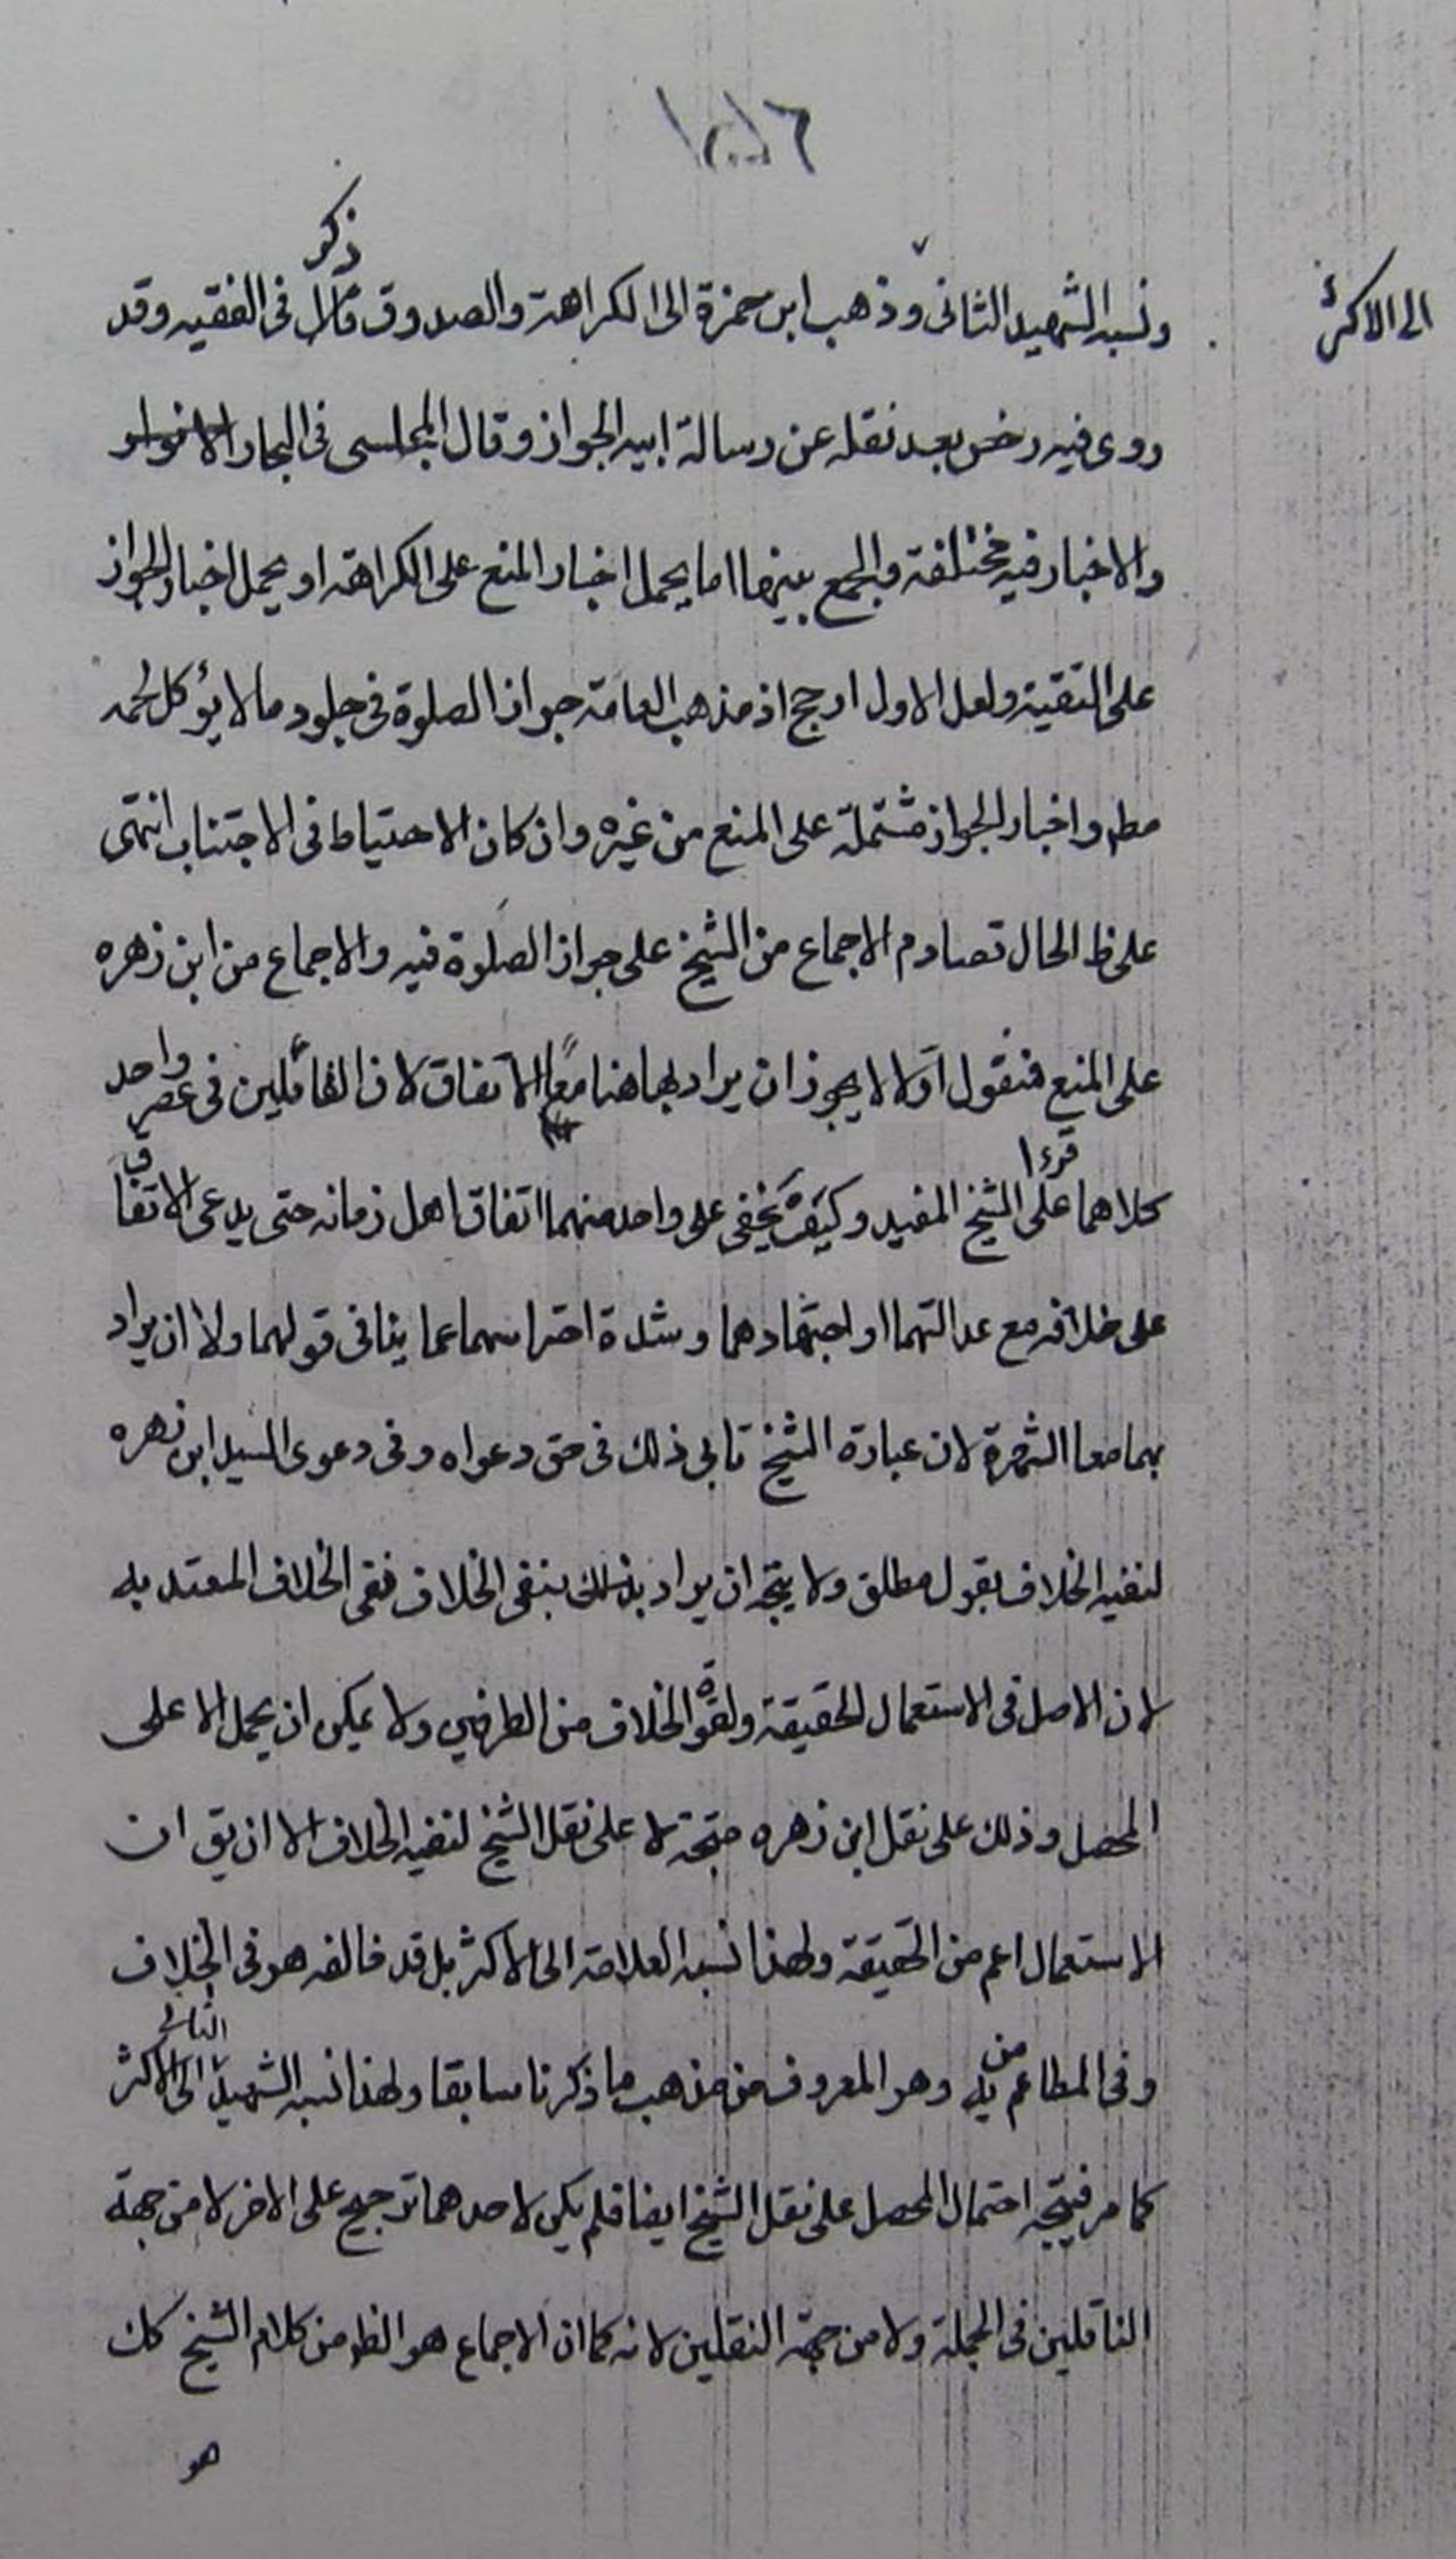 الى الاكثر
ذكر
ونسبه الشهيد الثانى وذهب ابن حمزة الى الكراهة والصدوق قال فى الفقيه وقد
روى فيه رخص بعد نقله عن رسالة ابيه الجواز وقال المجلسى فى البحار
والاخبار فيه مختلفة والجمع بينهما اما يحمل اخبار المنع على الكراهة او يحمل اخبار الجواز
على التقية ولعل الاول ارجح اذ مذهب العامة جواز الصلوة فى جلود ما لا يؤكل لحمه
مطم واخبار الجواز مشتملة على المنع من غيره وان كان الاحتياط فى الاجتناب انتهى
على ظ الحال تصادم الاجماع من الشيخ على جواز الصلوة فيه والاجماع من ابن زهره
على المنع فنقول اولا لا يجوز ان يراد بها هنا معا الاتفاق لان القائلين فى عصر واحد
قرءا
كلاهما على الشيخ المفيد وكيف يخفى على واحد منهما اتفاق اهل زمانه حتى يدعى الاتفاق
على خلافه مع عدالتهما او اجتهادهما وشدة احتراسهما عما ينافى قولهما ولا ان يراد
بهما معا الشهرة لان عبارة الشيخ تابى ذلك فى حق دعواه وفى دعوى السيد ابن زهره
لنفيه الخلاف بقول مطلق ولا يتجه ان يراد بذلك بنفى الخلاف نفى الخلاف المعتد به
لان الاصل فى الاستعمال الحقيقة ولقوة الخلاف من الطرفين ولا يمكن ان يحمل الا على
المحصل وذلك على نقل ابن زهره متجه لا على نقل الشيخ لنفيه الخلاف الا ان يق ان
الاستعمال اعم من الحقيقة ولهذا نسبه العلامة الى الاكثر بل قد خالفه هو فى الخلاف
الثانى
وفى المطاعم من يه وهو المعروف من مذهب ما ذكرنا سابقا ولهذا نسبه الشهيد الى الاكثر
كما مر فيتجه احتمال المحصل على نقل الشيخ ايضا فلم يكن لاحدهما ترجيح على الاخر لا من جهة
الناقلين فى الجملة ولا من جهة النقلين لانه كما ان الاجماع هو الظ من كلام الشيخ كك
هو